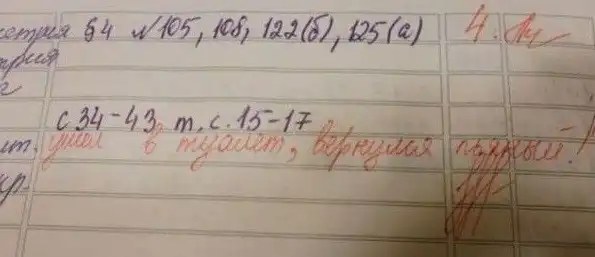 етрия §4 №105, 108, 122(б), 125(а) 4.
с 34-43, т, с. 15-17
ушел в туалет, вернулся пьяный!